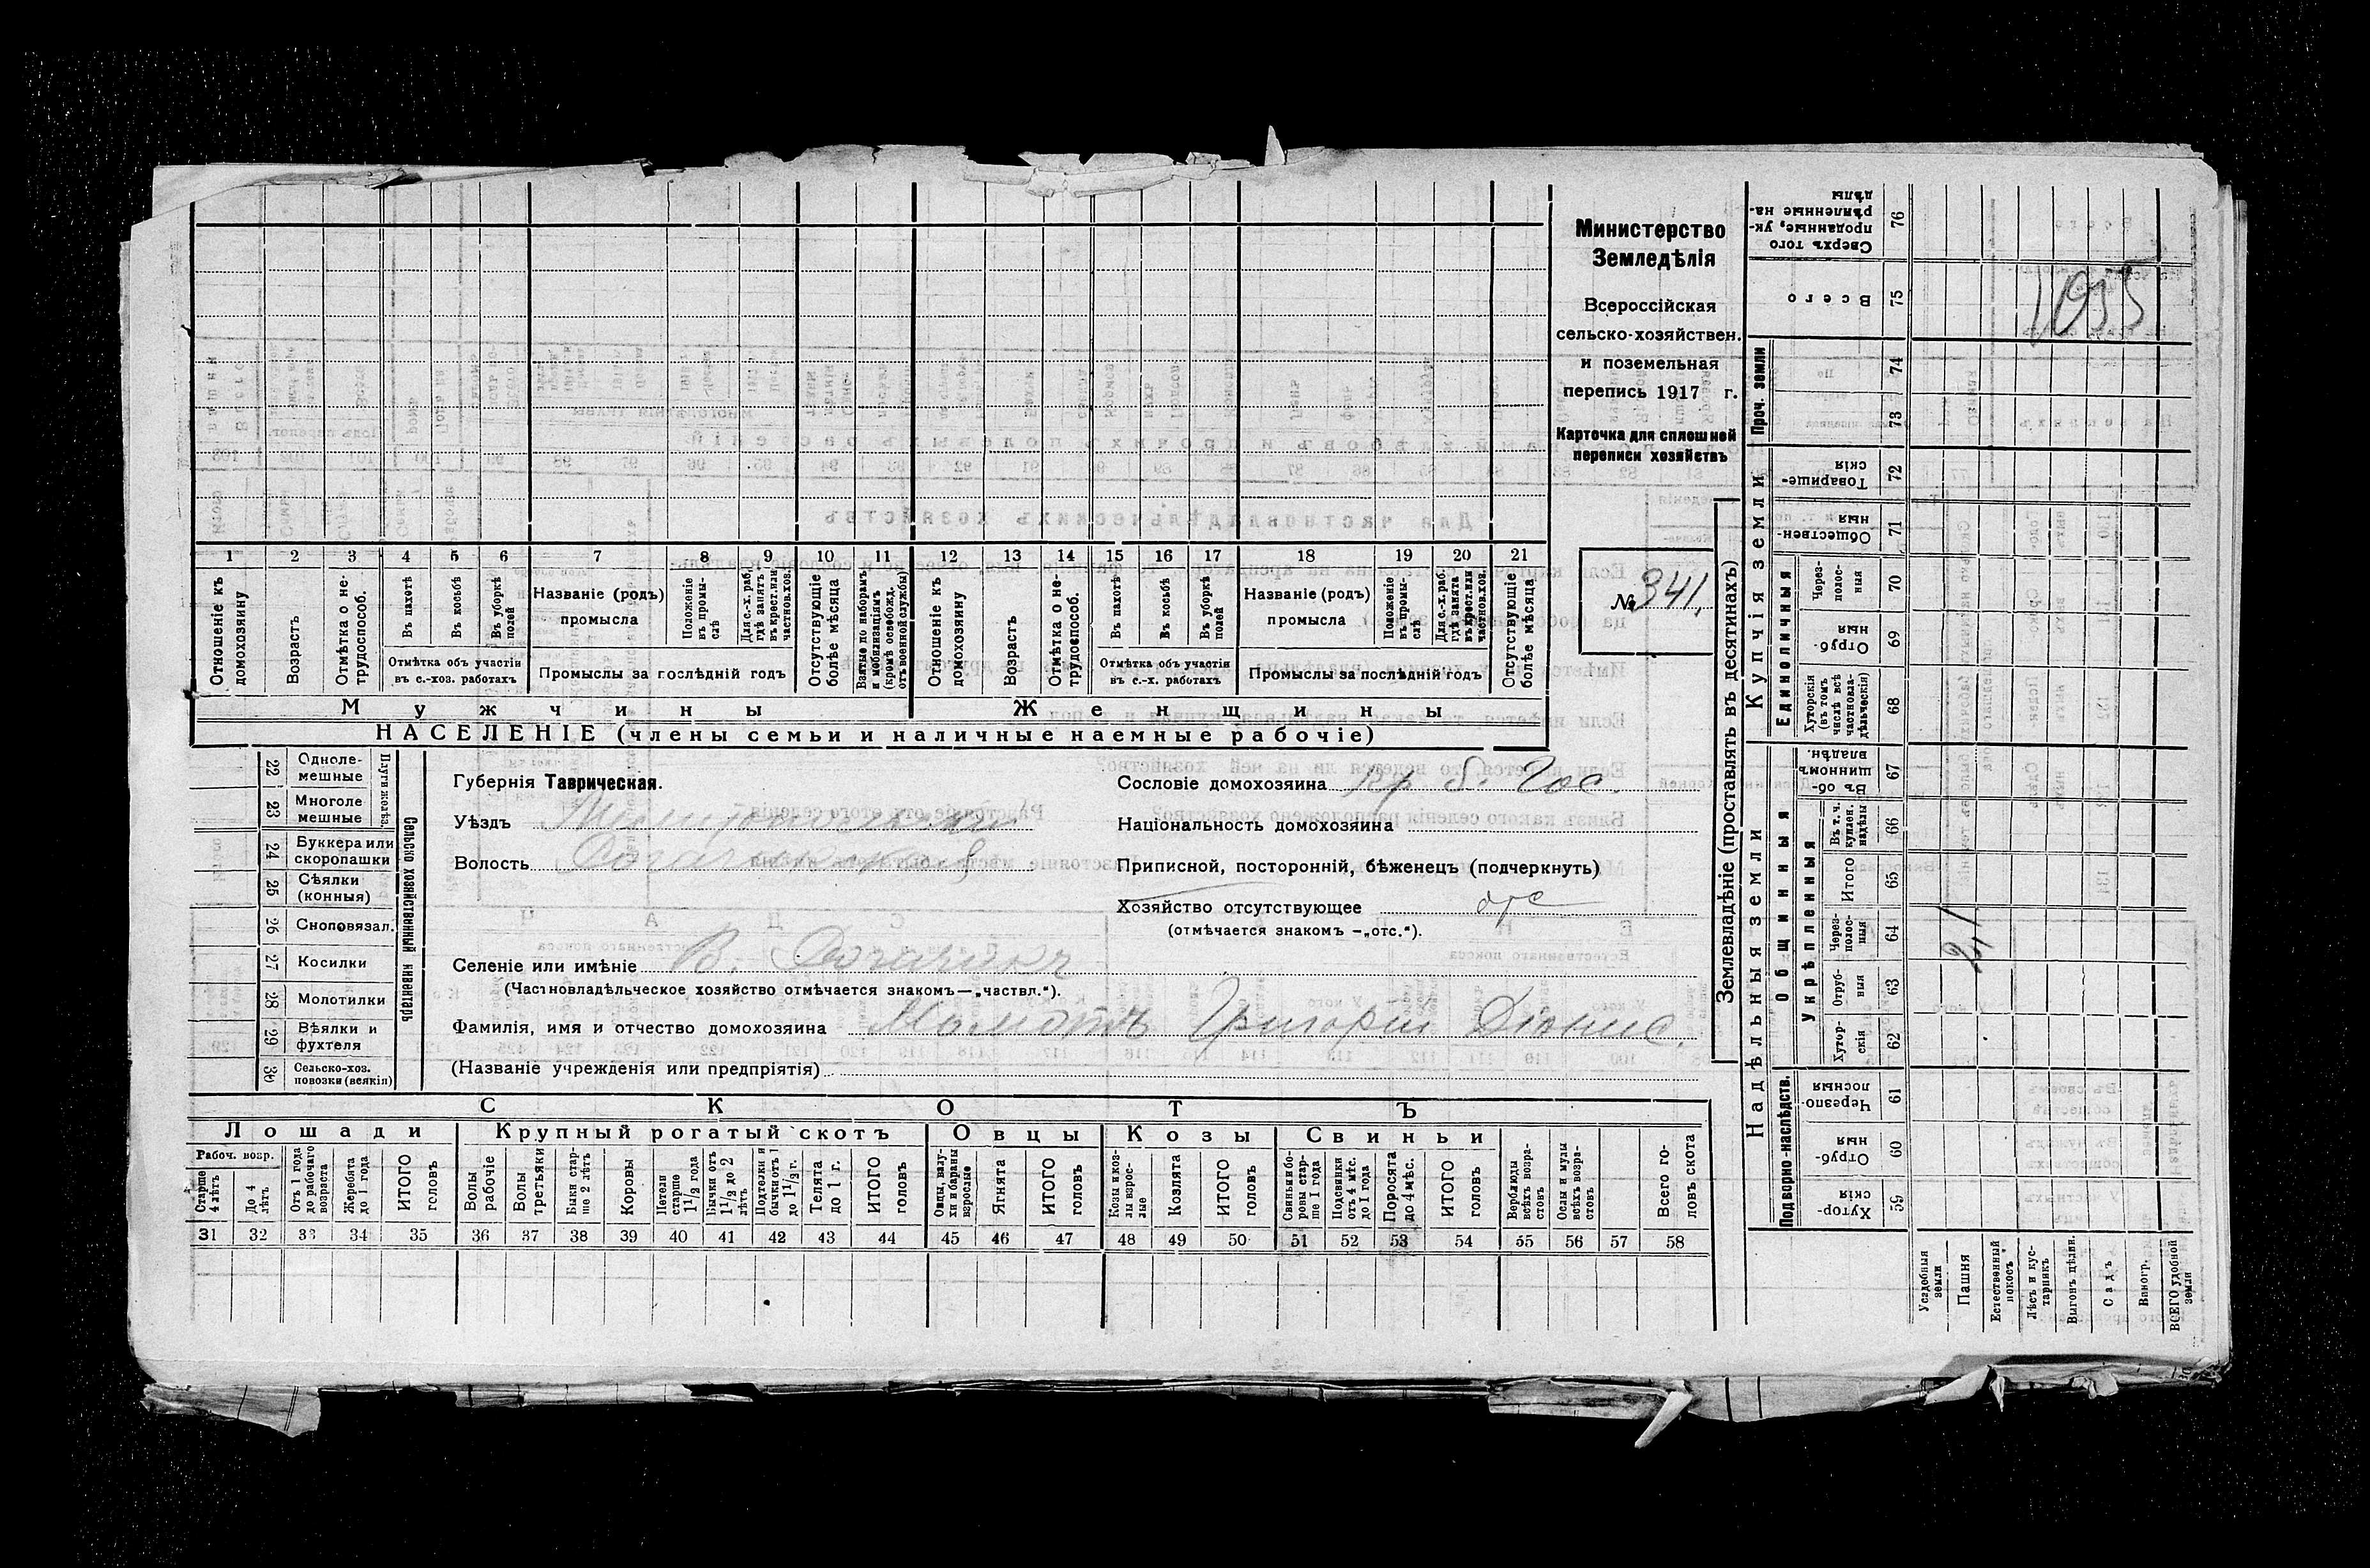 Министерство
Земледѣлія
Всероссійская
сельско-хозяйствен.
и поземельная
перепись 1917 г.
Карточка для сплошней
переписи хозяйствъ
№ 341.
1 2 3 4 5 6 7 8 9 10 11 12 13 14 15 16 17 18 19 20 21
Отношеніе къ домохозяину
Возрастъ
Отмѣтка о не-трудоспособ.
Въ пахотѣ
Въ косьбѣ
Въ уборкѣ полей
Отмѣтка объ участіи
въ с.-хоз. работахъ
Названіе (родъ)
промысла
Положеніе въ промы-слѣ
Для с.-х. раб. гдѣ занятъ въ крест. или частнов. хоз.
Промыслы за послѣдній годъ
Отсутствующіе болѣе мѣсяца
Взятые по наборамъ и мобилизаціямъ (кромѣ освобожд. отъ военной службы)
Отношеніе къ домохозяину
Возрастъ
Отмѣтка о не-трудоспособ.
Въ пахотѣ
Въ косьбѣ
Въ уборкѣ полей
Отмѣтка объ участіи
въ с.-х. работахъ
Названіе (родъ)
промысла
Положеніе въ промы-слѣ
Для с.-х. раб. гдѣ занята въ крест. или частнов. хоз.
Промыслы за послѣдній годъ
Отсутствующіе болѣе мѣсяца
Мужчины Женщины
НАСЕЛЕНІЕ (члены семьи и наличные наемные рабочіе)
Сельско хозяйственный инвентарь
Плуги желѣз.
22 Одноле-мешные
23 Многоле мешные
24 Буккера или скоропашки
25 Сѣялки (конныя)
26 Сноповязал.
27 Косилки
28 Молотилки
29 Вѣялки и фухтеля
30 Сельско-хоз. повозки (всякія)
Губернія Таврическая.
Уѣздъ
Волость
Селеніе или имѣніе В. Рогачикъ
(Частновладѣльческое хозяйство отмѣчается знакомъ—„частвл.“).
Фамилія, имя и отчество домохозяина Григорій Діонис.
(Названіе учрежденія или предпріятія)
Сословіе домохозяина кр б. Гос.
Національность домохозяина
Приписной, посторонній, бѣженецъ (подчеркнуть)
Хозяйство отсутствующее отс
(отмѣчается знакомъ —„отс.“).
СКОТЪ
Лошади Крупный рогатый скотъ Овцы Козы Свиньи
Рабоч. возр.
Старше 4 лѣтъ
До 4 лѣтъ
Отъ 1 года до рабочаго возраста
Жеребята до 1 года
ИТОГО головъ
Волы рабочіе
Волы третьяки
Быки стар-ше 2 лѣтъ
Коровы
Нетели старше 1 1/2 года
Бычки отъ 1 1/2 до 2 лѣтъ
Подтелки и бычки отъ 1 до 1 1/2 г.
Телята до 1 г.
ИТОГО головъ
Овцы, валу-хи и бараны взрослые
Ягнята
ИТОГО головъ
Козы и коз-лы взрос-лые
Козлята
ИТОГО головъ
Свиньи и бо-ровы стар-ше 1 года
Подсвинки отъ 4 мѣс. до 1 года
Поросята до 4 мѣс.
ИТОГО головъ
Верблюды всѣхъ возра-стовъ
Ослы и мулы всѣхъ возра-стовъ
Всего го-ловъ скота
31 32 33 34 35 36 37 38 39 40 41 42 43 44 45 46 47 48 49 50 51 52 53 54 55 56 57 58
Землевладѣніе (проставлять въ десятинахъ)
Надѣльныя земли
Купчія земли
Проч. земли
Подворно-наслѣдств.
Общинныя
Укрѣпленныя
Единоличныя
Сверхъ того проданные, ук-рѣпленные на-дѣлы 76
Всего 75
74
73
Товарище-скія 72
Обществен-ныя 71
Через-полос-ныя 70
Отруб-ныя 69
Хуторскія (въ томъ числѣ всѣ частновла-дѣльческія) 68
Въ об-щинномъ владѣн. 67
Въ т. ч. куплен. надѣлы 66
Итого 65
Через-полос-ныя 64
Отруб-ныя 63
Хутор-скія 62
Черезпо-лосныя 61
Отруб-ныя 60
Хутор-скія 59
Усадебныя земли
Пашня
Естественный покосъ
Лѣсъ и кус-тарникъ
Выгонъ цѣлин.
Садъ
Виногр.
ВСЕГО удобной земли
1055